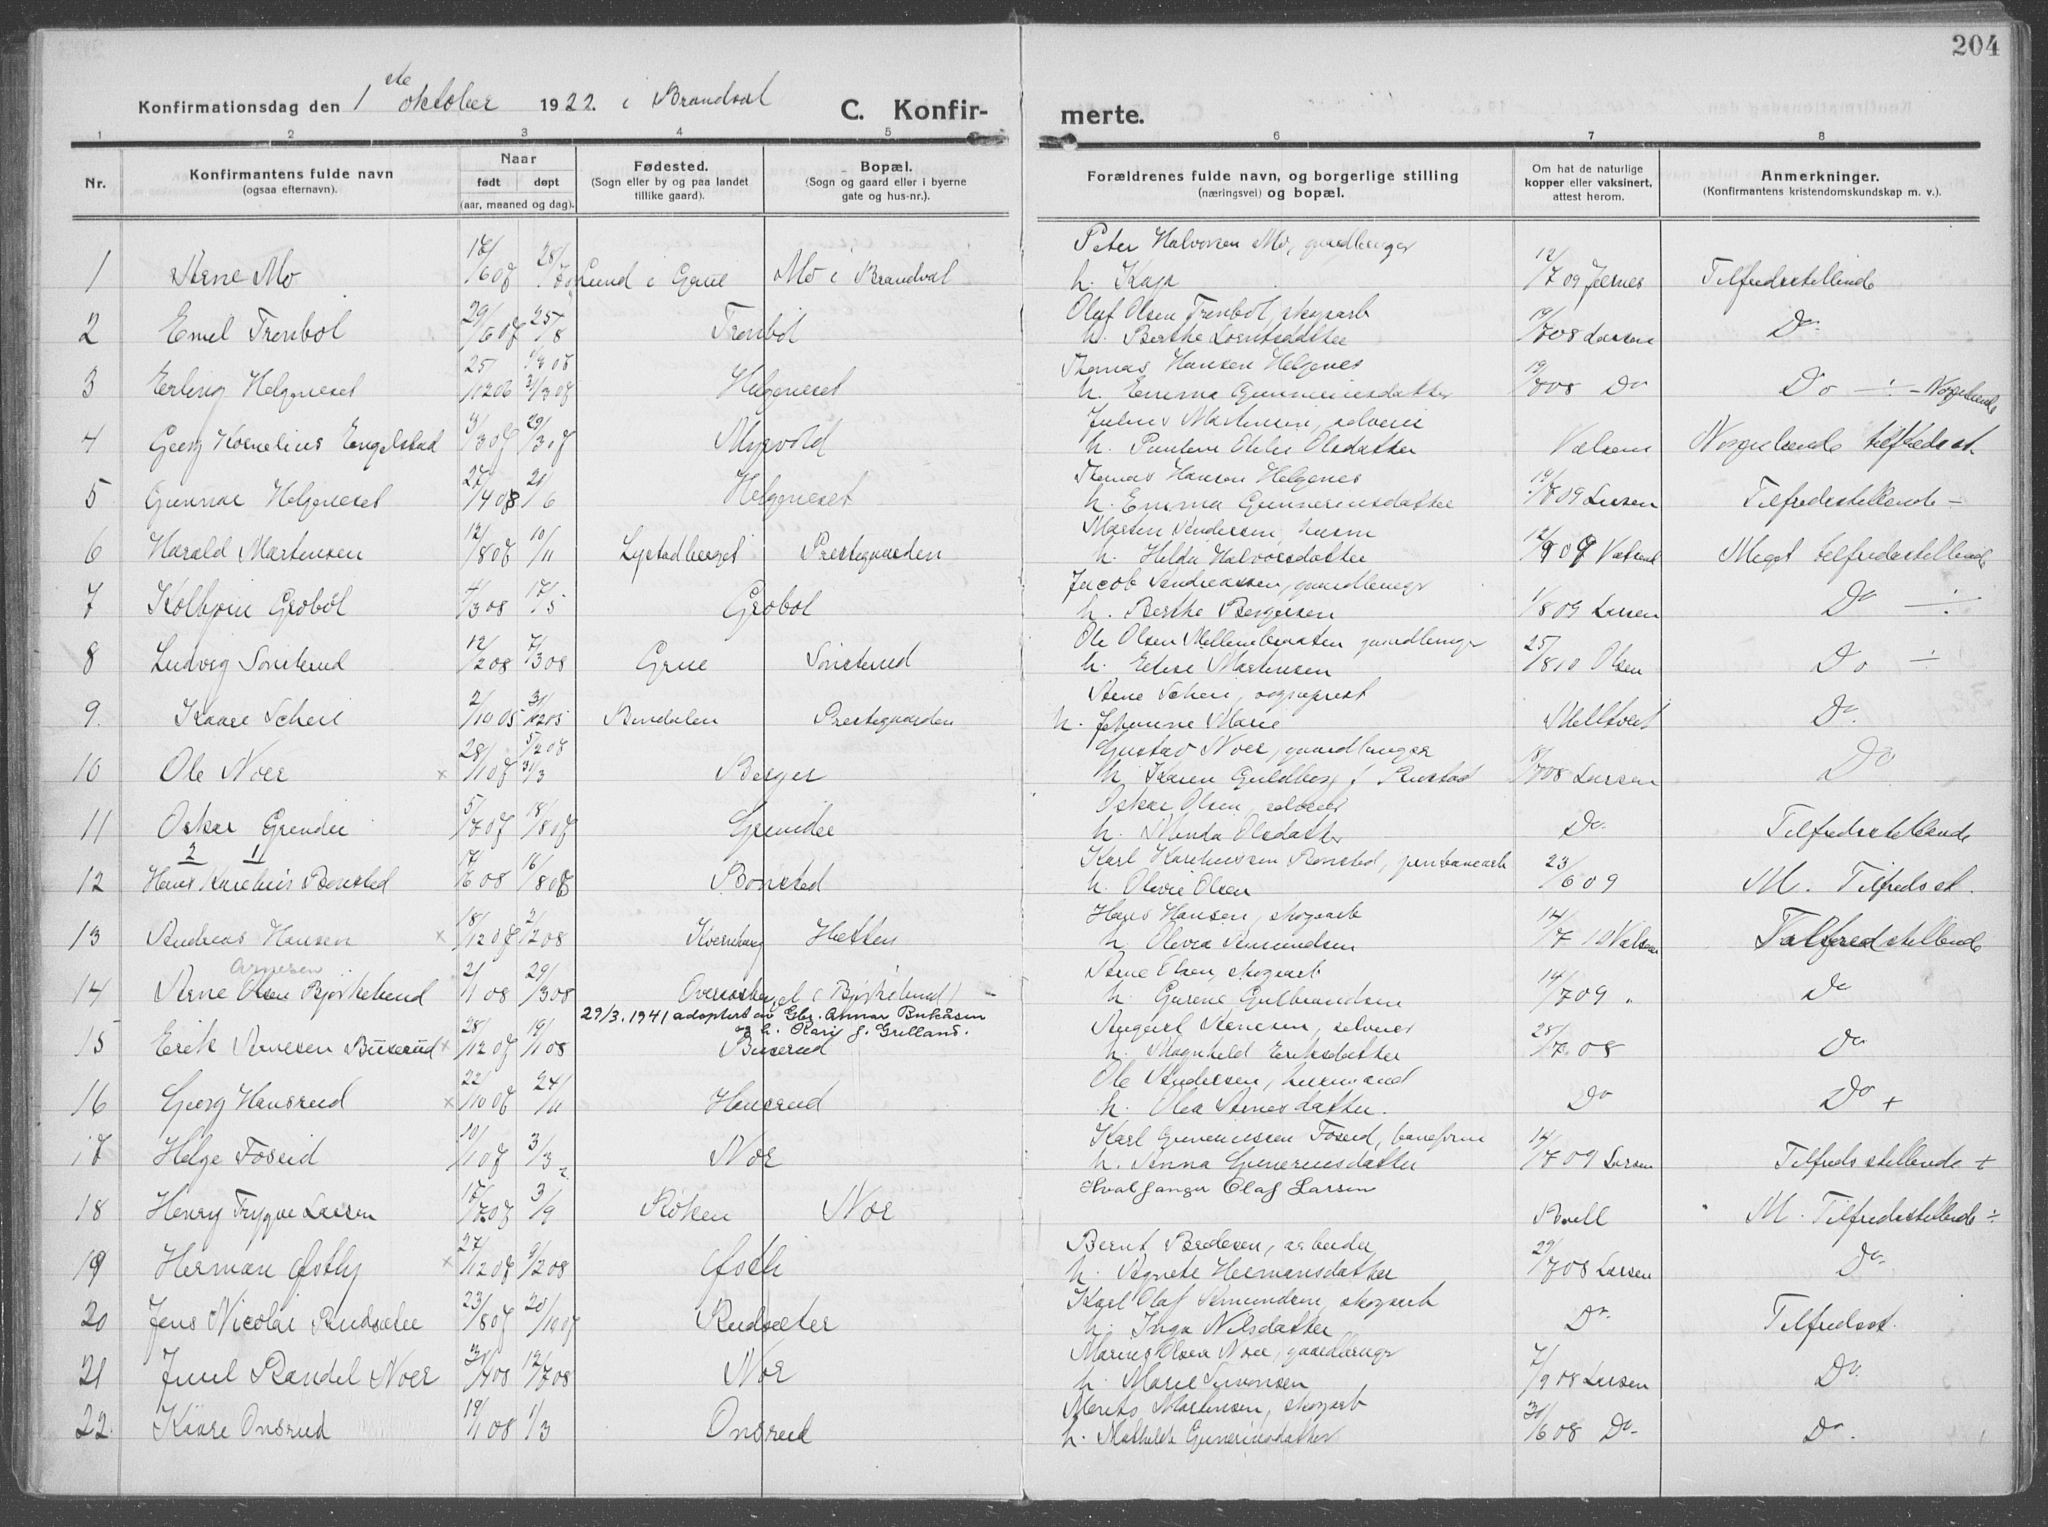 204
Konfirmationsdag den 1ste oktober 1922. i Brandval
C. Konfir-
merte.
1 2 3 4 5 6 7 8
Nr.
Konfirmantens fulde navn
(ogsaa efternavn).
Naar
født døpt
(aar, maaned og dag).
Fødested.
(Sogn eller by og paa landet
tillike gaard).
Bopæl.
(Sogn og gaard eller i byerne
gate og hus-nr.).
Forældrenes fulde navn, og borgerlige stilling
(næringsvei) og bopæl.
Om hat de naturlige
kopper eller vaksinert,
attest herom.
Anmerkninger.
(Konfirmantens kristendomskundskap m. v.).
Peter Halvorsen Mo, gaardbruger
1 Arne Mo 17/6 07 28/7 07 Lund i Grue Mo i Brandval h. Kaja 12/7 09 Jernes Tilfredsstillende
Oluf Olsen Trenbøl, skogsarb
2 Emil Trenbøl 29/6 07 25/8 Trenbøl h. Berthe 19/7 08 Larsen Do
Thomas Hansen Helgenes
3 Erling Helgeneset 25/10 206 31/3 07 Helgeneset h. Emma Gunnerinsdatter 19/7 08 Do Do ÷ – Nøgelende
Julius Martinsen, selveier
4 Georg Kornelius Engelstad 3/3 07 29/3 07 Myrvold h. Olsdatter Nøgelende tilfredsst.
Thomas Hansen Helgenes
5 Gunnar Helgeneset 27/4 08 21/6 Helgeneset h. Emma Gunnerinsdatter 19/7 09 Larsen Tilfredsstillende –
Martin Andersen, husm
6 Harald Martinsen 12/8 07 10/11 Lystadberget Prestegaarden h. Helda Halvorsdatter Meget tilfredsstillende
Jacob Andreassen, gaardbruger
7 Kolbjørn Grøbøl 4/3 08 17/5 Grøbøl h. Berthe Bergersen 1/8 09 Larsen Do ÷
Ole Olsen Mellembraaten gaardbruger
8 Ludvig Sonsterud 12/2 08 7/3 08 Grue Sonsterud h. Eline Martinsen 25/8 10 Olsen Do ÷
Arne Schei, sogneprest
9. Kaare Schei 2/10 05 31/12 05 Bindalen Prestegaarden h. Johanne Marie Do.
Gustav Noer, gaardbruger
10 Ole Noer × 28/11 07 31/3 Berger h. Karen Guldborg f. Rustad 18/7 08 Larsen Do
Oskar Olsen, selveier
11 Oskar Grender 5/7 07 18/8 07 Grender h. Minda Olsdatter Do. Tilfredsstillende
2 1
12 Hans Karelius Bonsted 17/6 08 16/8 08 Bonsted Karl Bonsted, jernbanearb
h. Olivie Olsen 23/6 09 M. Tilfredsst.
Hans Hansen, skogsarb
13 Andreas Hansen × 18/12 07 2/2 08 Hetten h. Olivia Amundsen 14/7 10 Tilfredsstillende
Arnesen
14 Arne Olsen Bjørkelund × 21/1 08 29/3 08 Overaasberget (Bjørkelund) – Arne Olsen, skogsarb
h. Gurine Gulbrandsen 14/7 09 „ Do
29/3. 1941 adoptert av Gbr. Annar Buråsen
og h. Kari f. Grilland.
August Arnesen, selveier
15 Erik Arnesen Buserud × 28/12 07 19/1 08 Buserud h. Magnhild Eriksdatter 28/7 08 Do
Ole Andersen, husmand
16 Georg Hansrud × 22/10 07 24/11 Hansrud h. Olea Arnesdatter. Do Do +
Karl Gunerinssen Foseid, baneform
17 Helge Foseid 10/1 07 3/3 Noer h. Anna Gunerinsdatter 14/7 09 Larsen Tilfredsstillende +
Hvalfanger Olaf Larsen
18 Henry Trygve Larsen 17/7 07 3/9 Røken Noer M. Tilfredsstillende ÷
Bernt Bredesen, arbeider
19 Herman Østby × 27/12 07 9/2 08 Østli h. Agnete Hermansdatter 29/7 08 Larsen Do.
Karl Olaf Amundsen skogsarb
20 Jens Nicolai Rudsæter 23/8 07 20/10 07 Rudsæter h. Inga Nilsdatter Do. Tilfredsst.
Marius Olsen Noer, gaardbruger
21 Juul Randel Noer 12/7 08 Noer h. Marie Simonsen 7/9 08 Larsen Do.
Morits Martinsen, skogsarb
22. Kaare Onsrud 19/1 08 1/3 Onsrud h. Mathilde Gunerinsdatter 30/6 08 Do– Do.